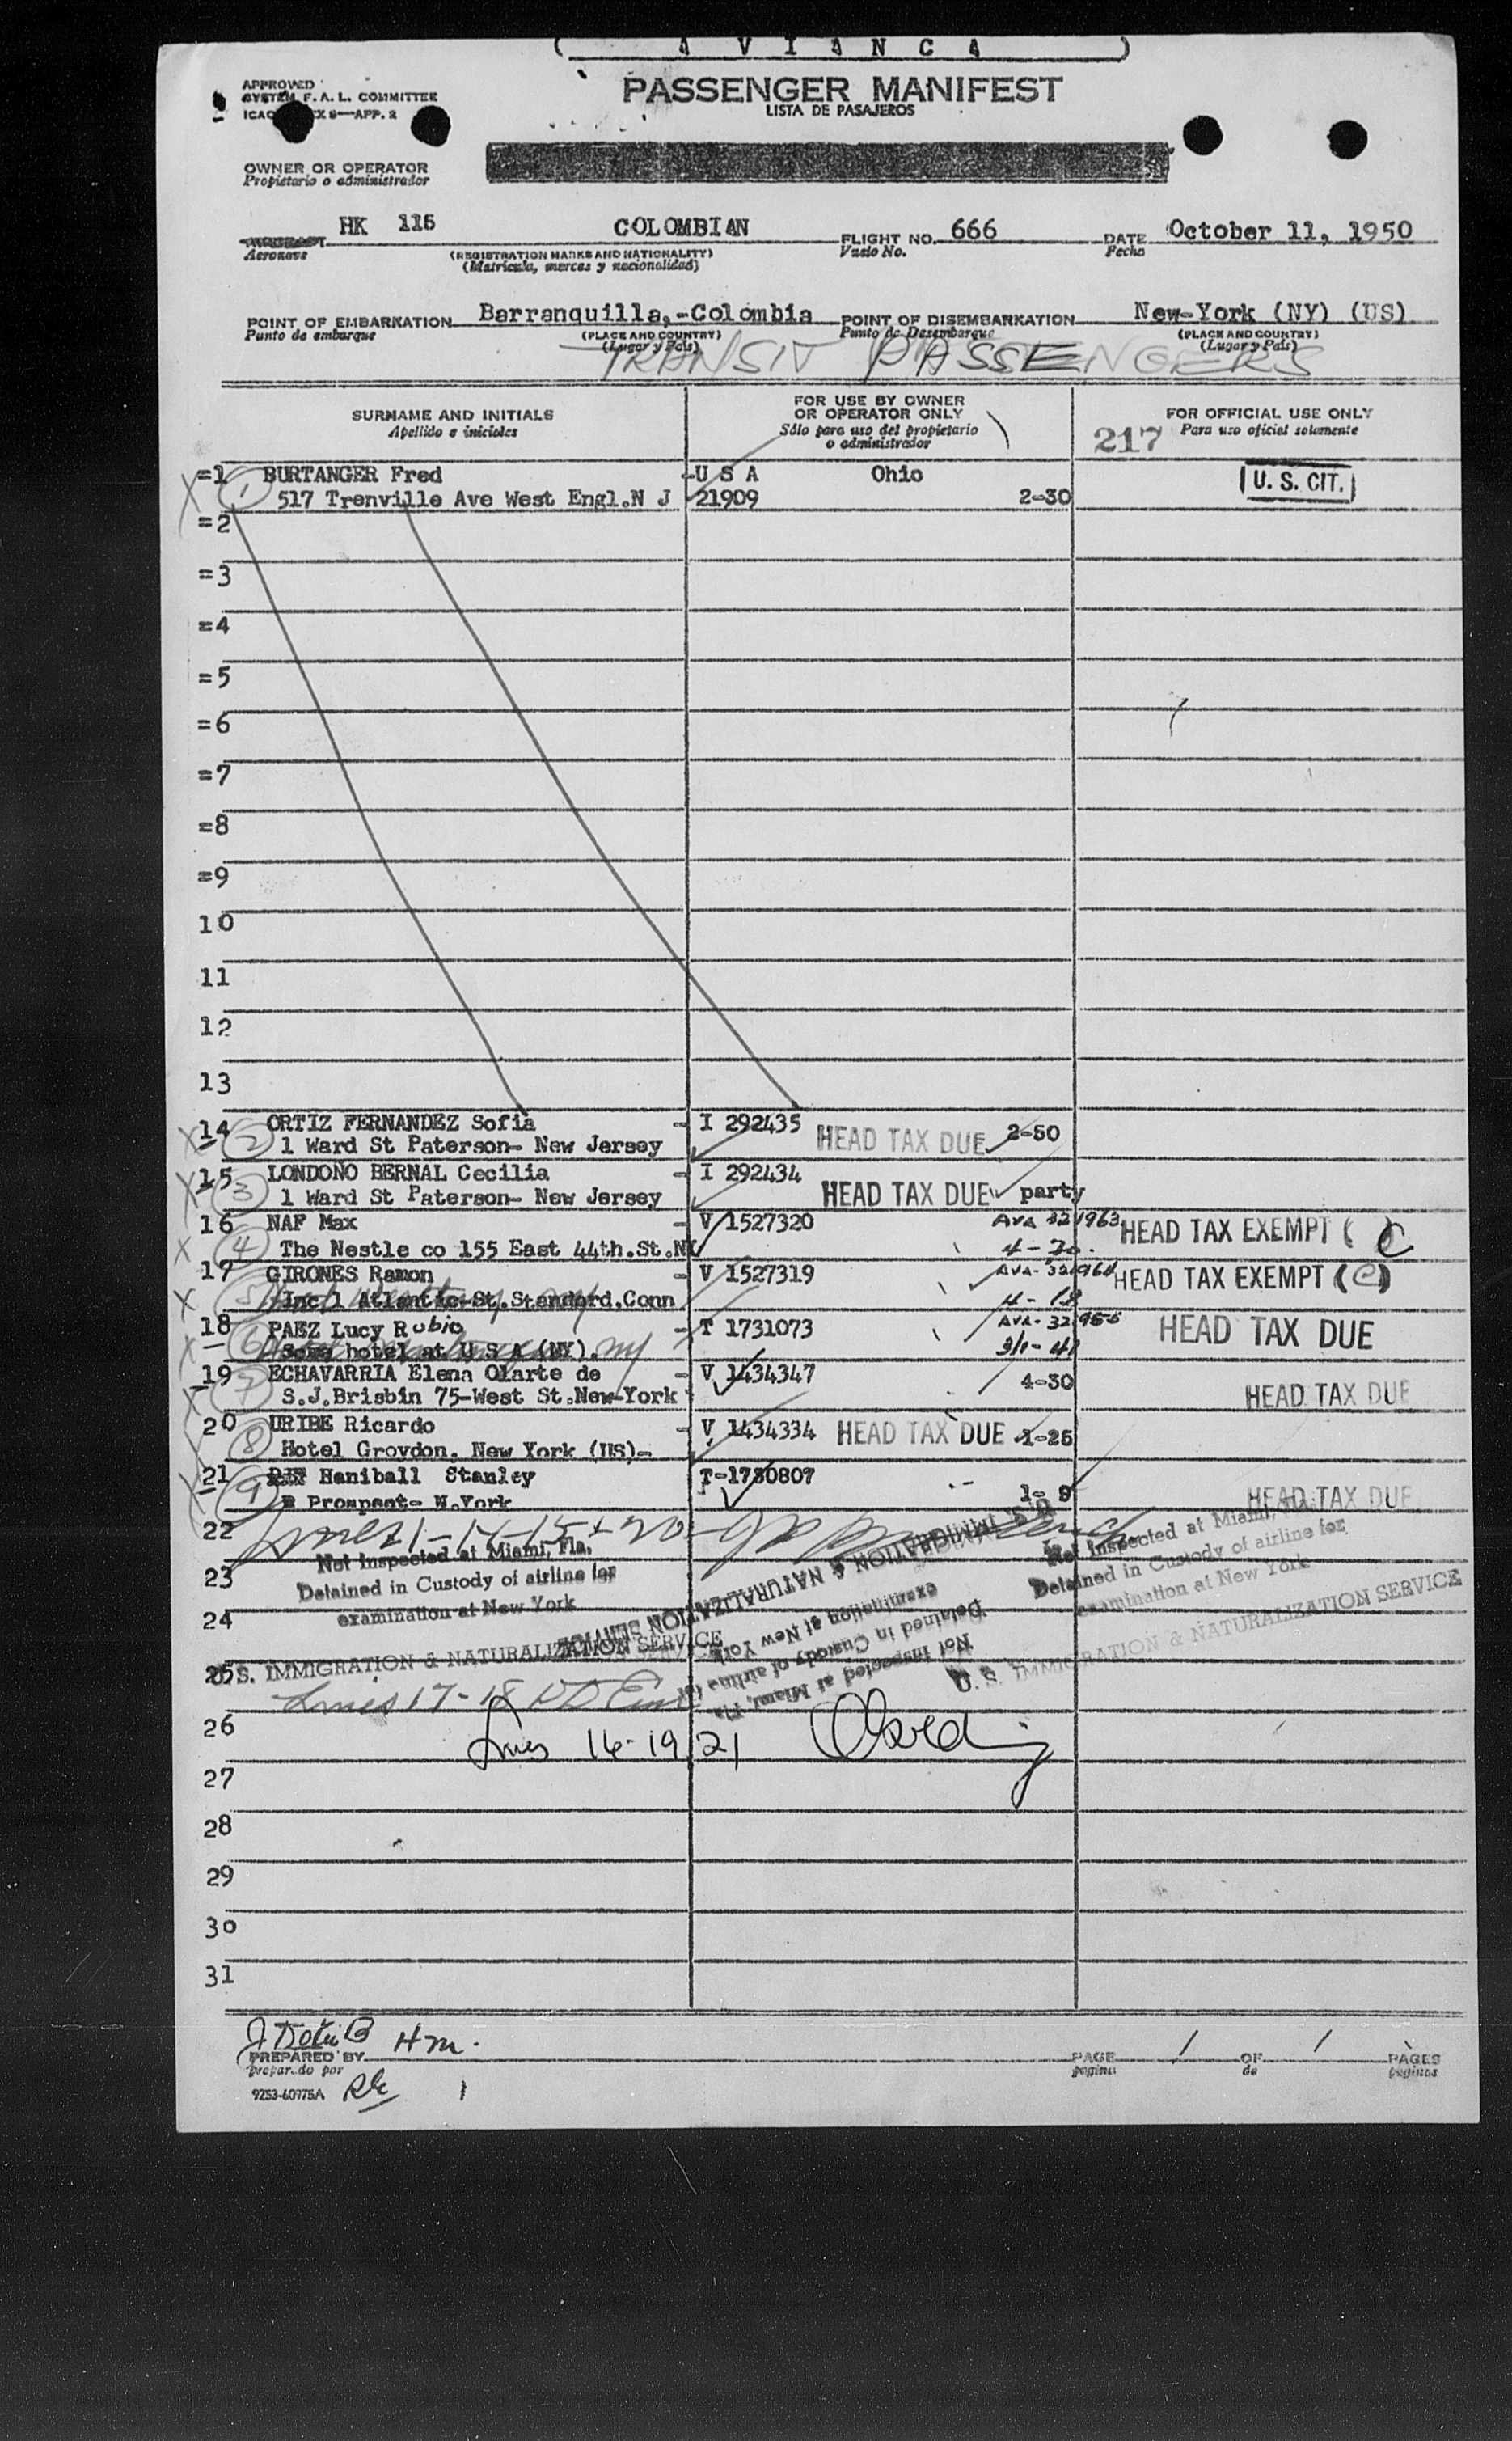 ( A V I A N C A )
APPROVED
SYSTEM F. A. L. COMMITTEE
ICAO X 9—APP. 2
PASSENGER MANIFEST
LISTA DE PASAJEROS
OWNER OR OPERATOR
Propietario o administrador
HK 115 COLOMBIAN FLIGHT NO. 666 DATE October 11, 1950
Aeronave (REGISTRATION MARKS AND NATIONALITY) Vuelo No. Fecha
(Matrícula, marcas y nacionalidad)
POINT OF EMBARKATION Barranquilla,-Colombia POINT OF DISEMBARKATION New-York (NY) (US)
Punto de embarque (PLACE AND COUNTRY) Punto de Desembarque (PLACE AND COUNTRY)
(Lugar y País) (Lugar y País)
TRANSIT PASSENGERS
SURNAME AND INITIALS
Apellido e iniciales
FOR USE BY OWNER
OR OPERATOR ONLY
Sólo para uso del propietario
o administrador
FOR OFFICIAL USE ONLY
217 Para uso oficial solamente
X =1 1 BURTANGER Fred - U S A Ohio U. S. CIT.
517 Trenville Ave West Engl.N J 21909 2-30
=2
=3
=4
=5
=6
=7
=8
=9
10
11
12
13
X 14 2 ORTIZ FERNANDEZ Sofia - I 292435 HEAD TAX DUE 2-50
1 Ward St Paterson- New Jersey
X 15 3 LONDOÑO BERNAL Cecilia - I 292434 HEAD TAX DUE party
1 Ward St Paterson- New Jersey
16 NAF Max - V 1527320 AVA 321963 HEAD TAX EXEMPT ( C
X 4 The Nestle co 155 East 44th.St.NY 4-30.
17 GIRONES Ramon - V 1527319 AVA-321964 HEAD TAX EXEMPT (C)
X 5 Inc 1 Atlantic-St.Stamford,Conn 4-18
18 PAEZ Lucy Rubio - T 1731073 AVA-321955 HEAD TAX DUE
X 6 Some hotel at U S A (NY). NY
19 ECHAVARRIA Elena Olarte de - V 1434347 4-30 HEAD TAX DUE
X 7 S.J.Brisbin 75-West St.New-York
20 URIBE Ricardo - V 1434334 HEAD TAX DUE 1-25
8 Hotel Groydon, New York (US)-
X 21 9 Haniball Stanley T-1730807 1- 9 HEAD TAX DUE
Prospect- N.York
22
Not Inspected at Miami, Fla.
23 Detained in Custody of airline for
24 examination at New York
25 U. S. IMMIGRATION & NATURALIZATION SERVICE
Not Inspected at Miami, Fla.
Detained in Custody of airline for
examination at New York
U. S. IMMIGRATION & NATURALIZATION SERVICE
Not Inspected at Miami, Fla.
Detained in Custody of airline for
examination at New York
U. S. IMMIGRATION & NATURALIZATION SERVICE
Lines 17-18
26 Lines 16-19 21
27
28
29
30
31
Hm.
PREPARED BY PAGE 1 OF 1 PAGES
preparado por página de páginas
9253-60775A 1